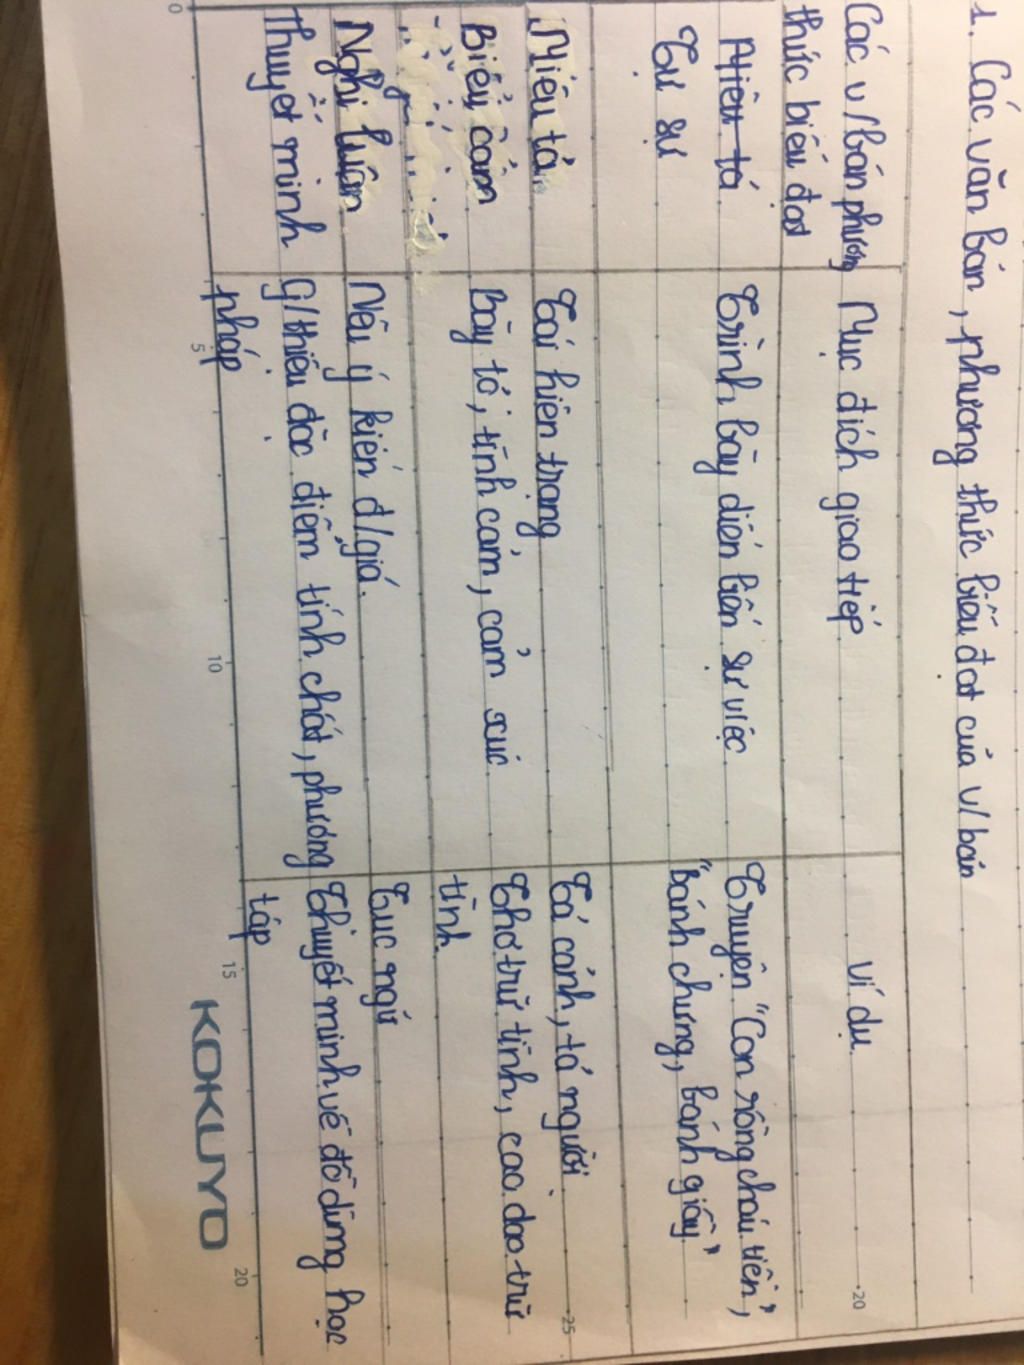 1. Các văn bản, phương thức biểu đạt của v/bản
Các v/bản phương
thức biểu đạt
Mục đích giao tiếp
Ví dụ
Miêu tả
Tự sự
Trình bày diễn biến sự việc
Truyện "Con rồng cháu tiên",
"Bánh chưng, bánh giầy"
Miêu tả
Tái hiện trạng
Tả cảnh, tả người
Biểu cảm
Bày tỏ, tình cảm, cảm xúc
Thơ trữ tình, ca dao trữ
tình
Nghị luận
Nêu ý kiến đ/giá.
Tục ngữ
Thuyết minh
G/thiệu đặc điểm tính chất, phương
pháp
Thuyết minh về đồ dùng học
tập
0
5
10
15
20
20
25
KOKUYO